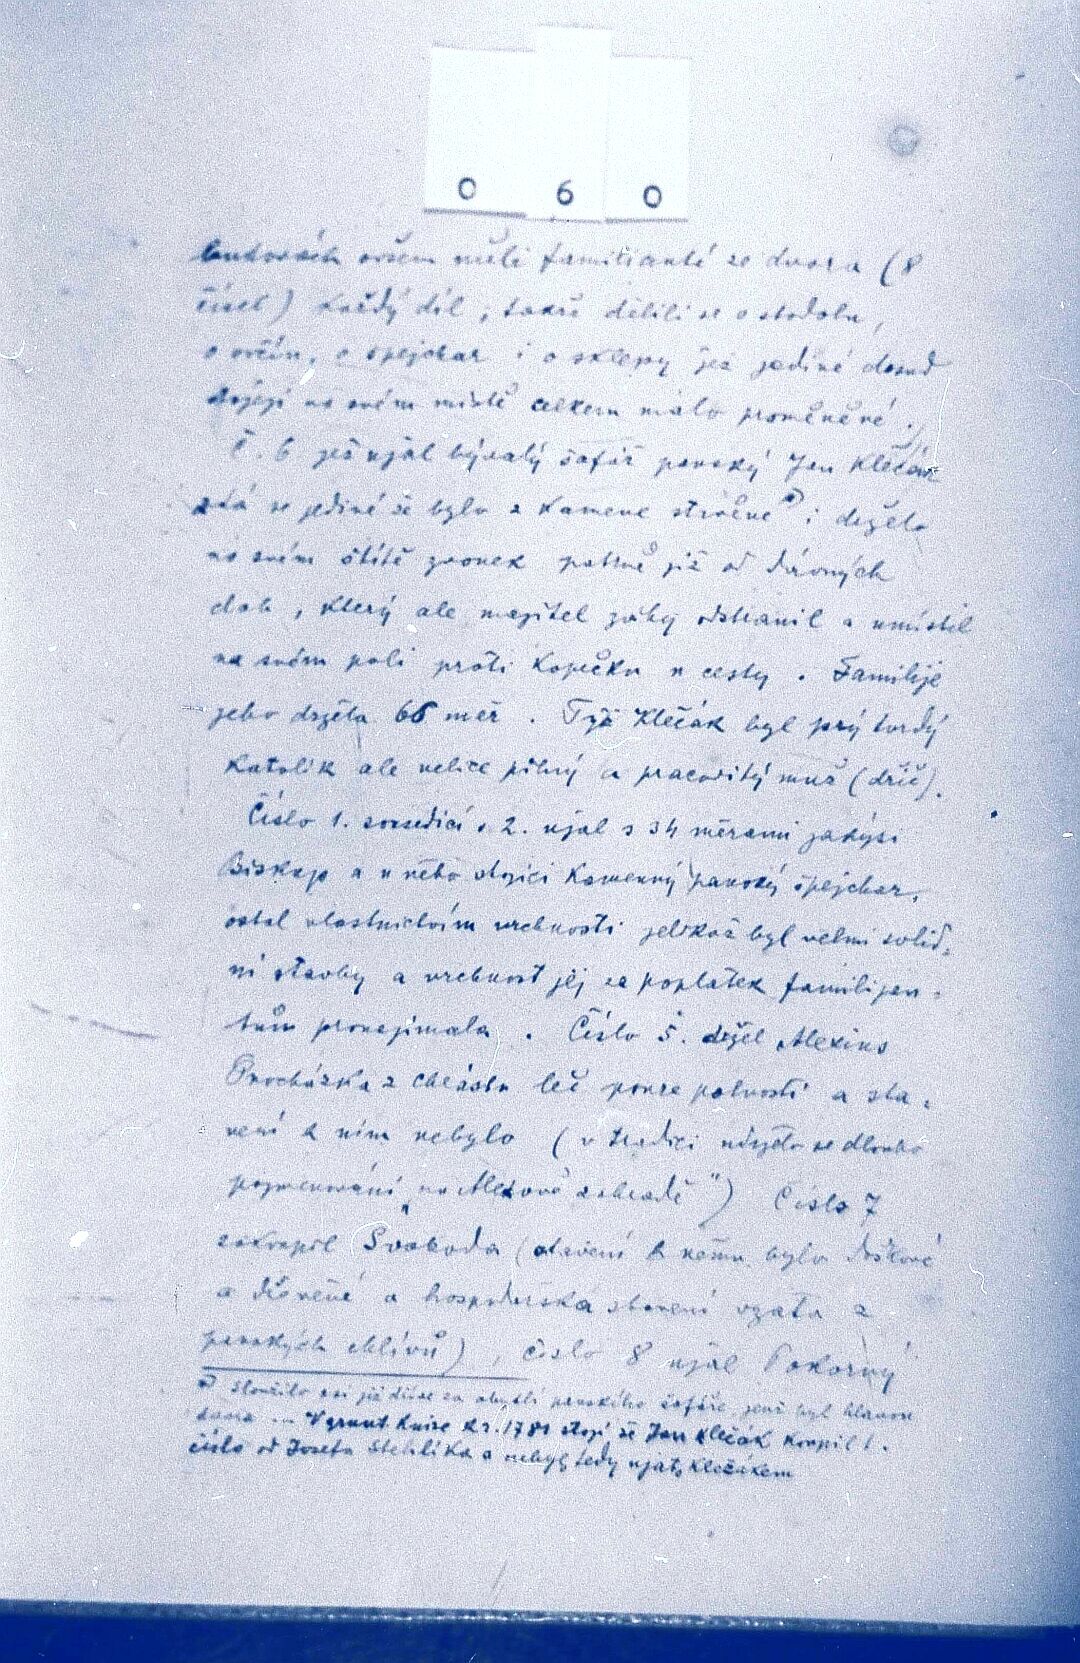 0 6 0
budovách ovšem měli familianté ze dvora (8
čísel) každý díl, takže dělili se o stodolu,
o ovčín, o špejchar i o sklepy jež jediné dosud
stojejí na svém místě celkem málo proměněné.
Č. 6 jež ujal bývalý šafář panský Jan Klečák
zdá se jediné že bylo z kamene stavěné i drželo
na svém štítě zvonek patrně již od dávných
dob, který ale majitel záhy odstranil a umístil
na svém poli proti Kopečku u cesty. Familije
jeho držela 66 měr. Týž Klečák byl prý tvrdý
katolík ale velice pilný a pracovitý muž (dříč).
Číslo 1. sousedící s 2. ujal s 34 měrami jakýsi
Biskup a u něho stojící kamenný panský špejchar,
ostal vlastnictvím vrchnosti jelikož byl velmi solid-
ní stavby a vrchnost jej za poplatek familijan-
tům pronajímala. Číslo 5. držel Alexius
Procházka z Chlástu leč pouze polnosti a sta-
vení k ním nebylo (v tradici udrželo se dlouho
pojmenování „na Alexově zahradě") Číslo 7
zakoupil Svoboda (stavení k němu bylo doškové
a dřevěné a hospodářská stavení vzata z
panských chlívů), číslo 8 ujal Pokorný
sloužilo asi již dříve za obydlí panského šafáře, jenž byl hlavou
V grunt. knize z r. 1781 stojí že Jan Klečák koupil t.
číslo od Josefa Stehlíka a nebylo tedy ujato Klečákem